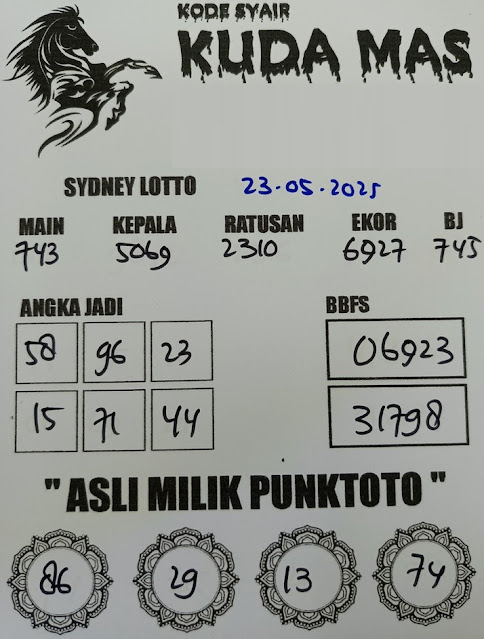 KODE SYAIR
KUDA MAS
SYDNEY LOTTO 23-05-2025
MAIN KEPALA RATUSAN EKOR BJ
743 5069 2310 6927 745
ANGKA JADI BBFS
58 96 23 06923
15 71 44 31798
" ASLI MILIK PUNKTOTO "
86 29 13 74